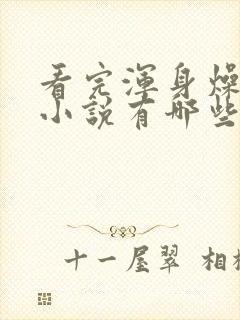 看完渾身燥
小說有哪些
十一屋翠 相